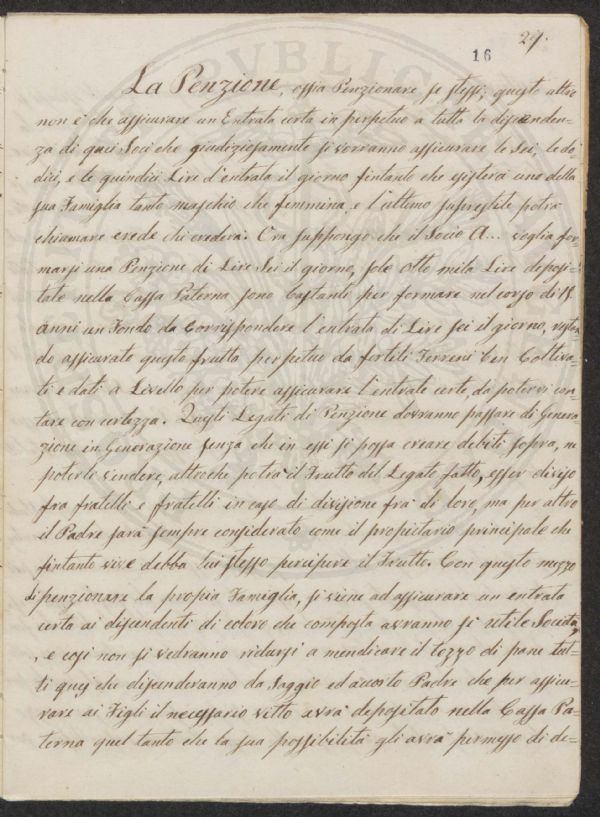 16
29.
La Penzione, ossia Penzionare se stessi; questo altro
non è che assicurare un Entrata certa in perpetuo a tutta la dipenden=
za di quei Soci che giudiziosamente si vorranno assicurare le Sei, le do=
dici, e le quindici Lire d'entrata il giorno fintanto che esisterà uno della
sua Famiglia tanto maschio che femmina, e l'ultimo superstite potrà
chiamare erede chi crederà. Ora suppongo che il Socio A... voglia for=
marsi una Penzione di Lire Sei il giorno, sole Otto mila Lire deposi=
tate nella Cassa Paterna sono bastanti per formare nel corso di 18.
anni un Fondo da Corrispondere l'entrata di Lire sei il giorno, restan
do assicurato questo frutto perpetuo da fertili Terreni ben Coltiva=
ti e dati a Livello per potere assicurare l'entrate certe, da potervi con=
tare con certezza. Questi Legati di Penzione dovranno passare di Genera=
zione in Generazione senza che in essi si possa creare debiti sopra, ne
poterli vendere, altro che potrà il Frutto del Legato fatto, esser diviso
fra fratelli e fratelli in caso di divisione fra di loro, ma per altro
il Padre sarà sempre considerato come il propietario principale che
fintanto vive debba lui stesso percipere il Frutto. Con questo mezzo
di penzionare la propia Famiglia, si viene ad assicurare un entrata
certa ai dipendenti di coloro che composta avranno sì utile Società
, e così non si vedranno ridursi a mendicare il tozzo di pane tut=
ti quej che discenderanno da Saggio ed accorto Padre che per assicu=
rare ai Figli il necessario vitto avrà depositato nella Cassa Pa=
terna quel tanto che la sua possibilità gli avrà permesso di de=